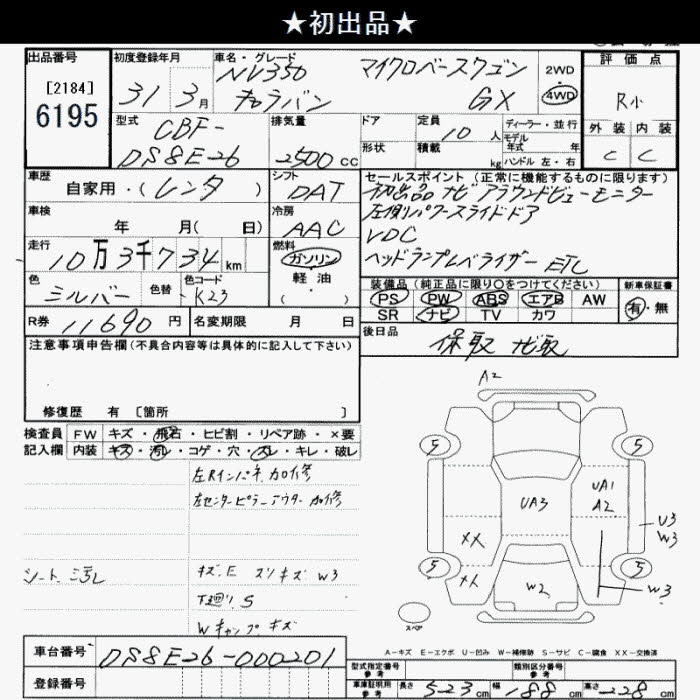 ★初出品★
出品番号
[2184]
6195
初度登録年月
31年3月
車名・グレード
NV350 マイクロバースワゴン
キャラバン GX
2WD
4WD
評価点
R小
外装 内装
C C
型式
CBF-
DS8E26
排気量
2500cc
ドア
形状
定員
10人
積載
kg
ディーラー・並行
モデル
年式 年
ハンドル 左・右
車歴
自家用・(レンタ)
シフト
DAT
セールスポイント (正常に機能するものに限ります)
初出品 ナビ アラウンドビューモニター
左側パワースライドドア
VDC
ヘッドランプレベライザー ETC
車検
年 月( 日)
冷房
AAC
走行
10万3千734km
燃料
ガソリン
軽油
( ・ )
色
シルバー
色替
色コード
K23
装備品 (純正品に限り○をつけてください)
PS PW ABS エアB AW
SR ナビ TV カワ
新車保証書
有・無
R券 11690円
名変期限 月 日
後日品
保取 ナビ取
注意事項申告欄(不具合内容等は具体的に記入して下さい)
修復歴 有 [箇所 ]
検査員
記入欄
FW キズ・飛石・ヒビ割・リペア跡・×要
内装 キズ・汚レ・コゲ・穴・スレ・キレ・破レ
左Rインパネ加修
左センターピラーアウター加修
シート汚レ
キズ.E スリキズ W3
下廻り.S
Wキャップキズ
A2
5
5
UA3
UA1
A2
U3
W3
XX
XX
5
5
W2
W3
スペア
A-キズ E-エクボ U-凹み W-補修跡 S-サビ C-腐食 XX-交換済
車台番号 DS8E26-000201
登録番号
型式指定番号
参考
類別区分番号
参考
車庫証明用
参考
長さ 523cm 幅 188cm 高さ 228cm